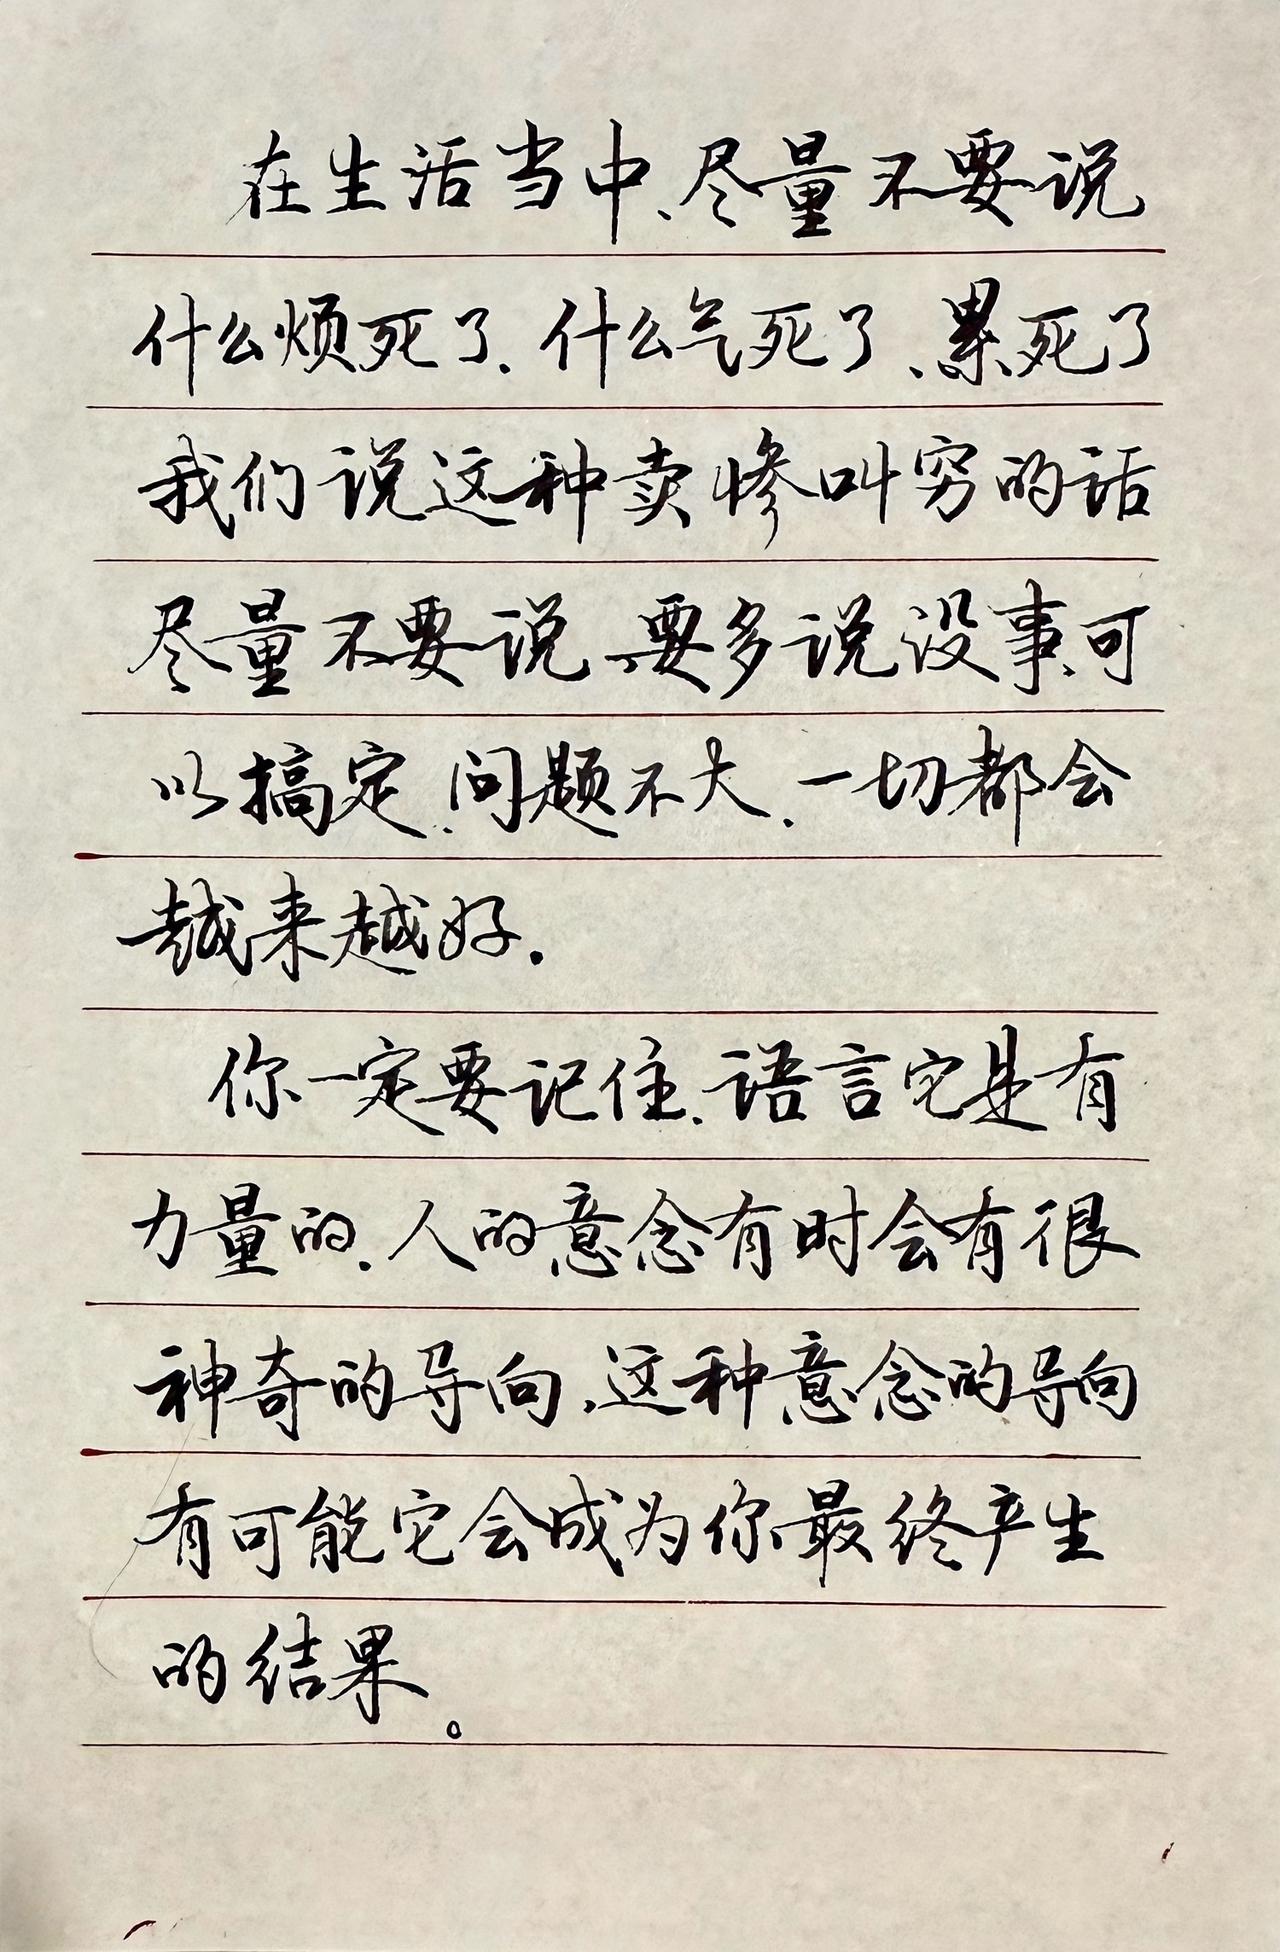 在生活当中、尽量不要说
什么烦死了.什么气死了、累死了
我们说这种卖惨叫穷的话
尽量不要说、要多说没事、可
以搞定.问题不大.一切都会
越来越好.
你一定要记住.语言它是有
力量的.人的意念有时会有很
神奇的导向、这种意念的导向
有可能它会成为你最终产生
的结果。